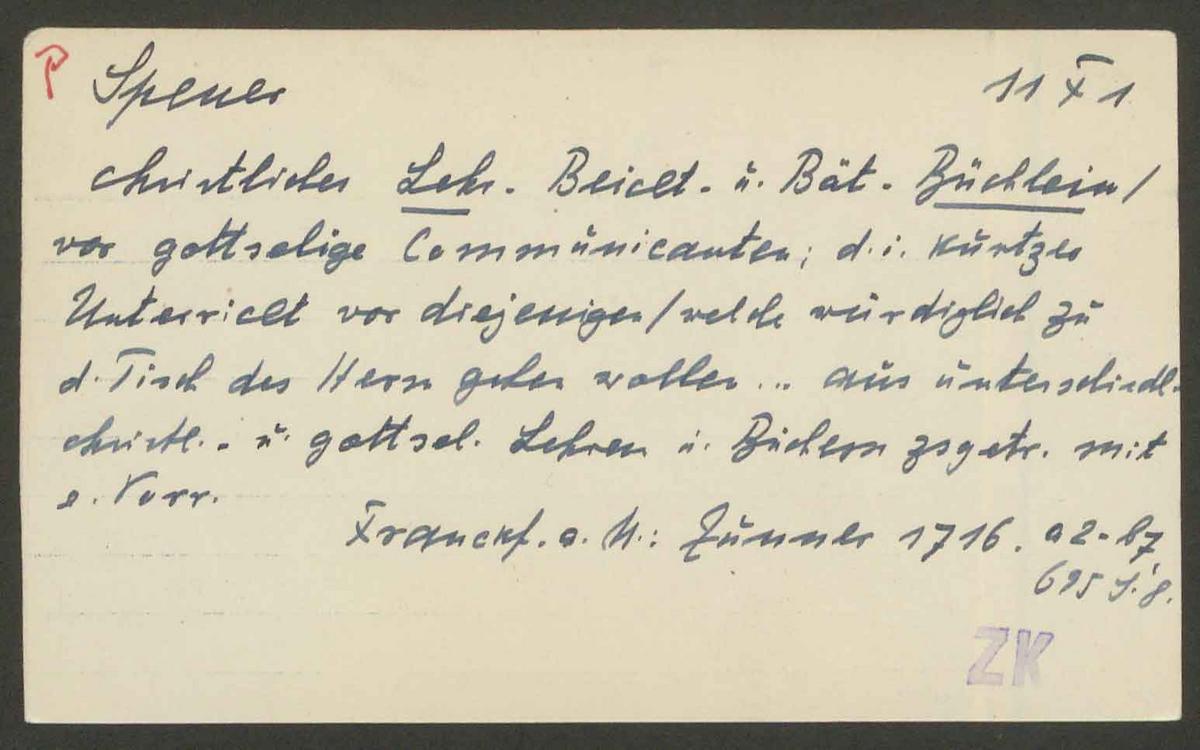 P Spener 11 F 1
christliches Lehr- Beicht- u. Bät-Büchlein/
vor gottselige Communicanten; d.i. kurtzer
Unterricht vor diejenigen/welche würdiglich zu
d. Tisch des Herrn gehen wollen... aus unterschiedl.
christl.- u. gottsel. Lehren u. Büchern zsgetr. mit
e. Vorr.
Franckf. a. M.: Zunner 1716. a2-b7
695 S. 8.
ZK